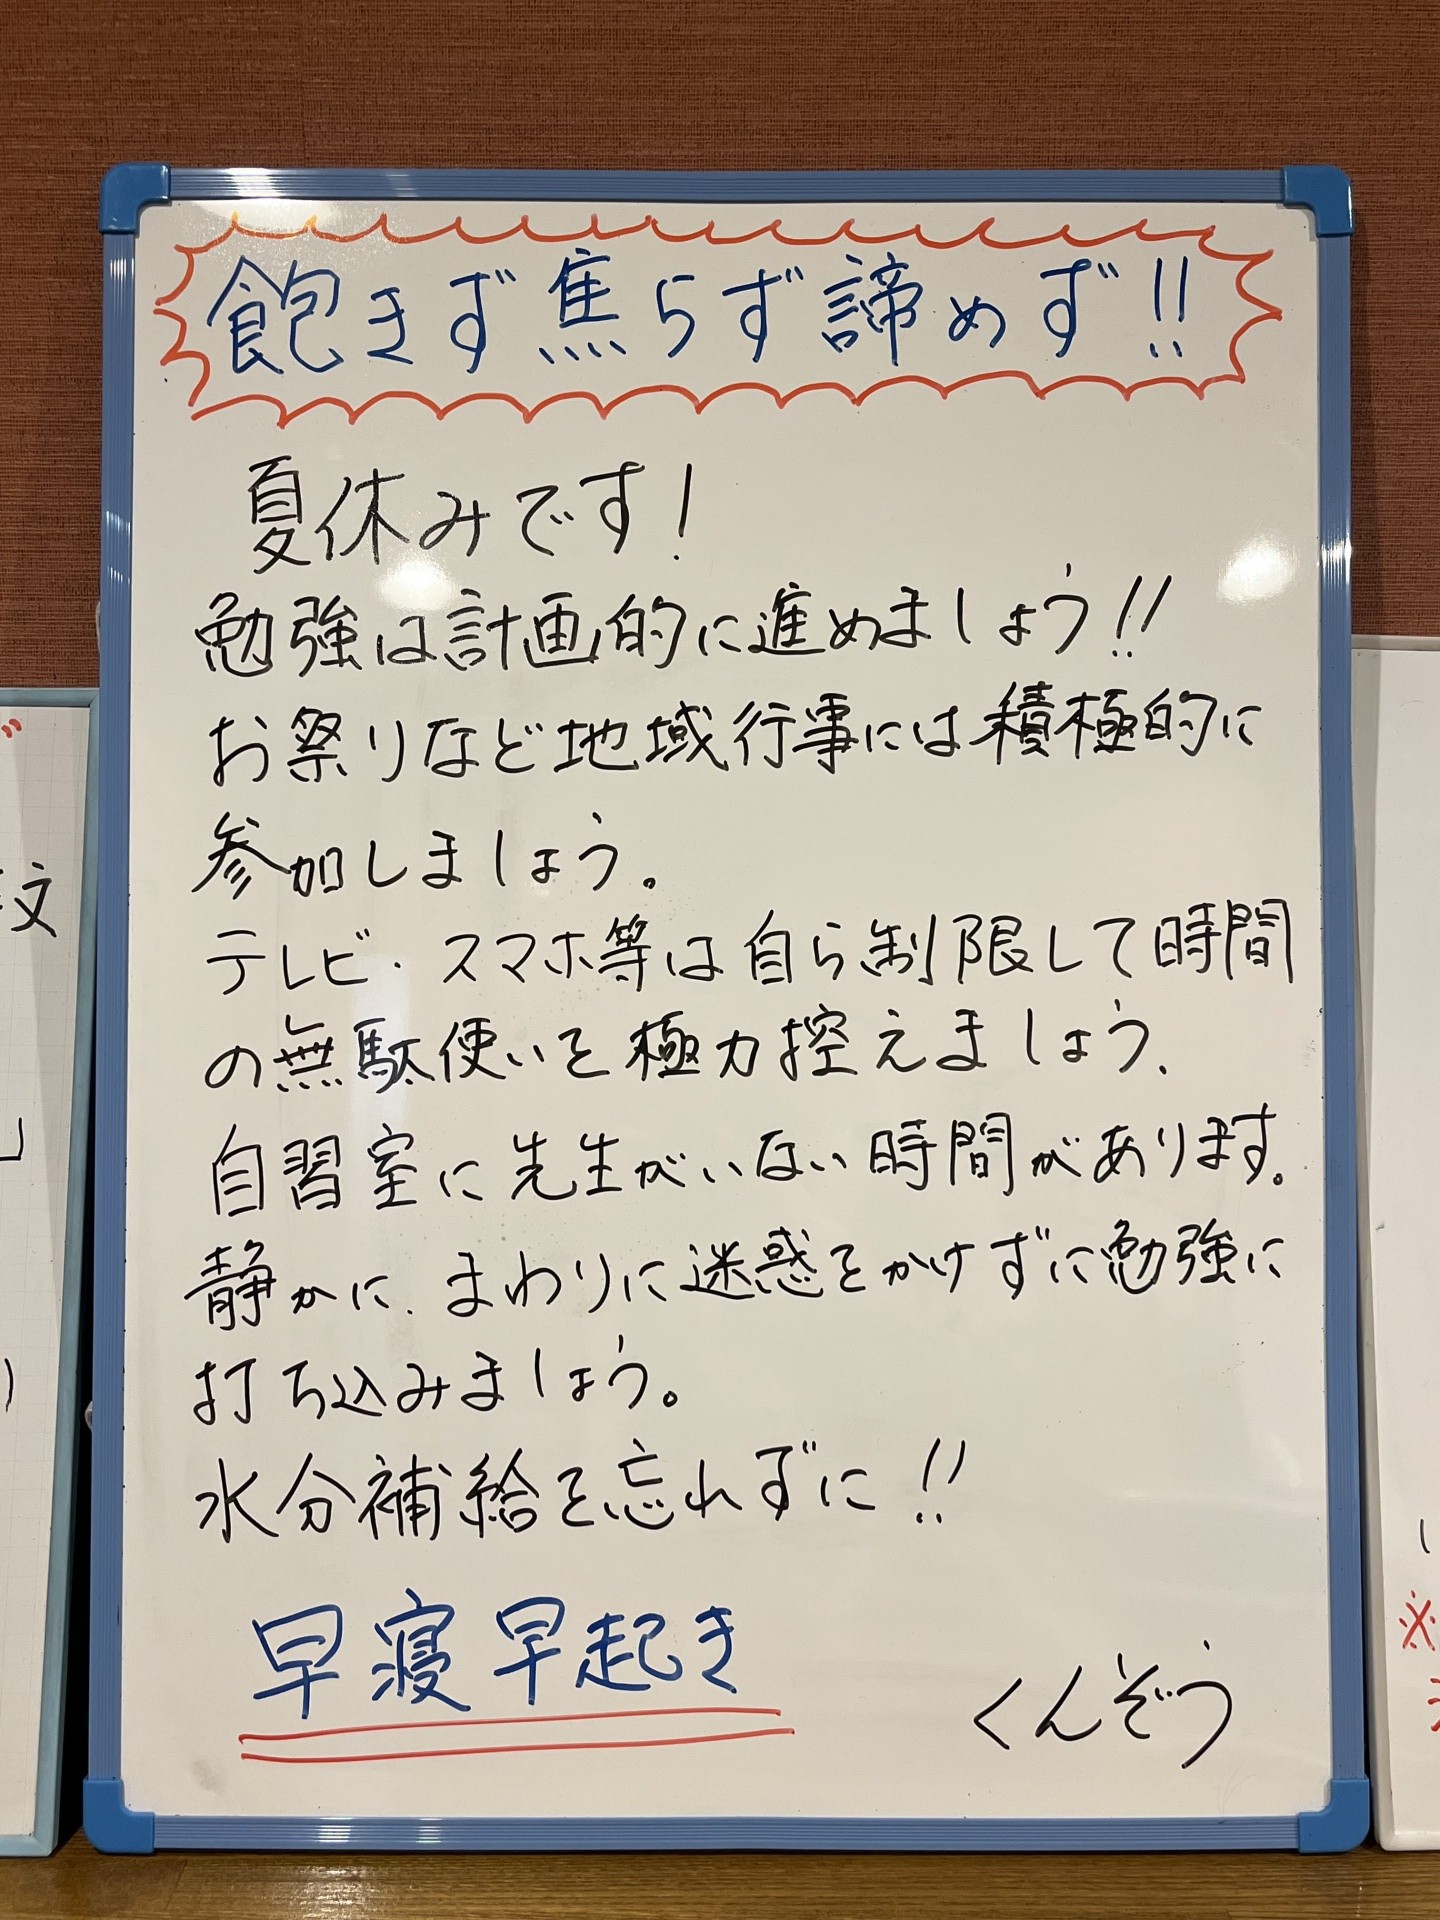 飽きず焦らず諦めず!!
夏休みです!
勉強は計画的に進めましょう!!
お祭りなど地域行事には積極的に
参加しましょう。
テレビ・スマホ等は自ら制限して時間
の無駄使いを極力控えましょう、
自習室に先生がいない時間があります。
静かに、まわりに迷惑をかけずに勉強に
打ち込みましょう。
水分補給を忘れずに!!
早寝早起き
くんぞう
文
※